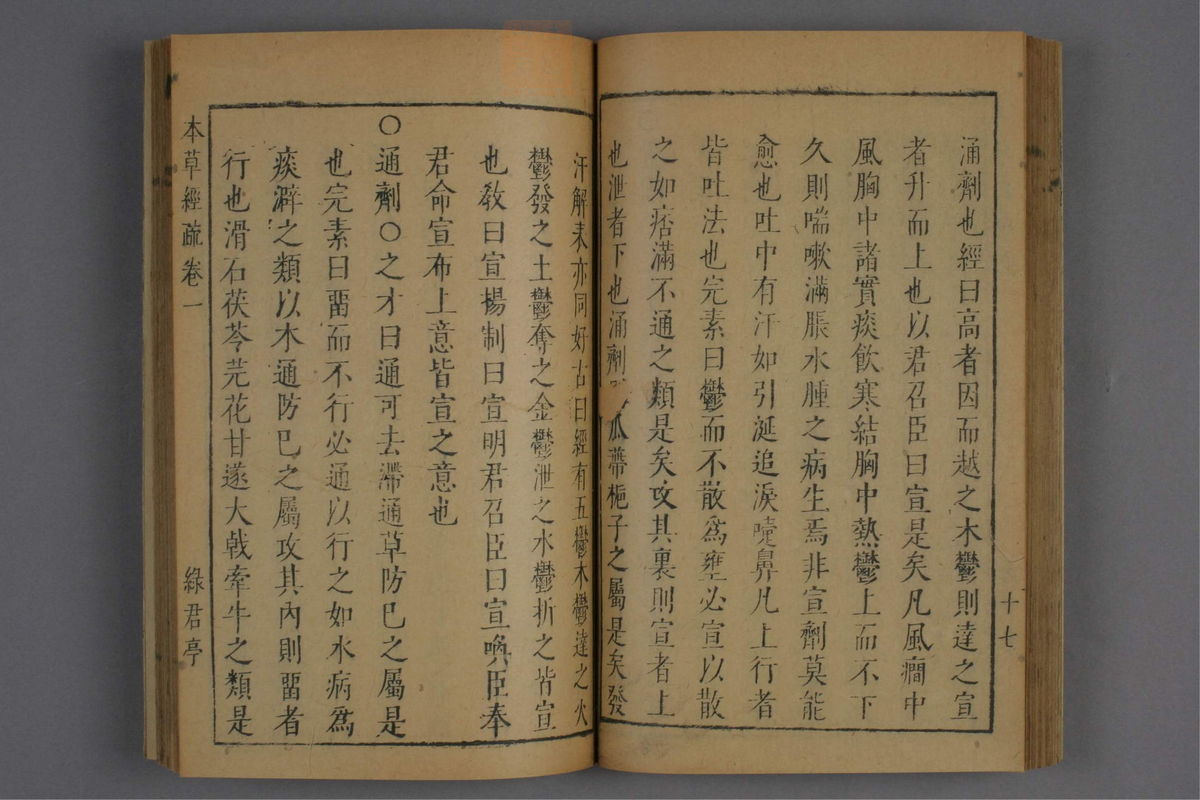 涌劑也經曰高者因而越之木鬱則達之宣
者升而上也以君召臣曰宣是矣凡風癎中
風胸中諸實痰飲寒結胸中熱鬱上而不下
久則喘嗽滿脹水腫之病生焉非宣劑莫能
愈也吐中有汗如引涎追淚嚏鼻凡上行者
皆吐法也完素曰鬱而不散爲壅必宣以散
之如痞滿不通之類是矣攻其裏則宣者上
也泄者下也涌劑瓜蒂梔子之屬是矣發
汗解表亦同好古曰經有五鬱木鬱達之火
鬱發之土鬱奪之金鬱泄之水鬱折之皆宣
也敎曰宣揚制曰宣明君召臣曰宣喚臣奉
君命宣布上意皆宣之意也
○通劑○之才曰通可去滯通草防巳之屬是
也完素曰畱而不行必通以行之如水病爲
痰澼之類以木通防巳之屬攻其內則畱者
行也滑石茯苓芫花甘遂大戟牽牛之類是
十七
本草經疏卷一
綠君亭